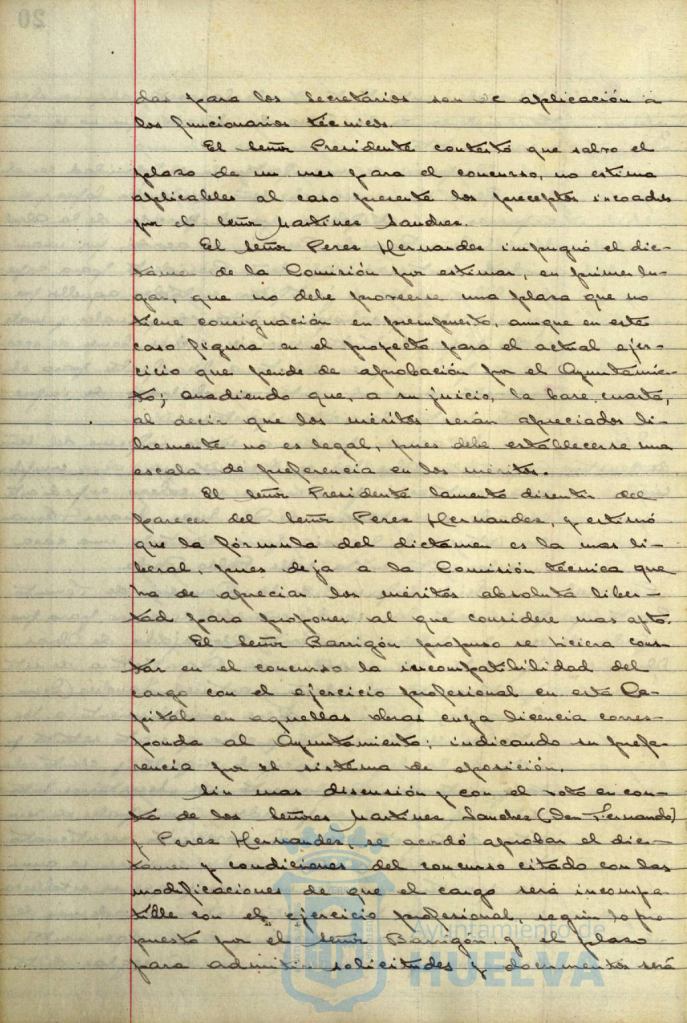 das para los secretarios son de aplicación a
los funcionarios técnicos.
El Señor Presidente contestó que salvo el
plazo de un mes para el concurso, no estima
aplicables al caso presente los preceptos invocados
por el Señor Martinez Sanchez.
El Señor Perez Hernandez impugnó el dic-
tamen de la Comisión por estimar, en primer lu-
gar, que no debe proveerse una plaza que no
tiene consignación en presupuesto, aunque en este
caso figura en el proyecto para el actual ejer-
cicio que pende de aprobación por el Ayuntamien-
to; anadiendo que, a su juicio, la base cuarta,
al decir que los méritos serán apreciados li-
bremente no es legal, pues debe establecerse una
escala de preferencia en los méritos.
El Señor Presidente lamentó disentir del
parecer del Señor Perez Hernandez, y estimó
que la fórmula del dictamen es la mas li-
beral, pues deja a la Comisión técnica que
ha de apreciar los méritos absoluta liber-
tad para proponer al que considere mas apto.
El Señor Barrigón propuso se hiciera cons-
tar en el concurso la incompatibilidad del
cargo con el ejercicio profesional en esta Ca-
pital en aquellas obras cuya licencia corres-
ponda al Ayuntamiento; indicando su prefe-
rencia por el sistema de oposición.
Sin mas discusión y con el voto en con-
tra de los Señores Martinez Sanchez (Don Fernando)
y Perez Hernandez, se acordó aprobar el dic-
tamen y condiciones del concurso citado con las
modificaciones de que el cargo será incompa-
tible con el ejercicio profesional, según lo pro-
puesto por el Señor Barrigón, y el plazo
para admitir solicitudes y documentos será
Ayuntamiento de
HUELVA
20